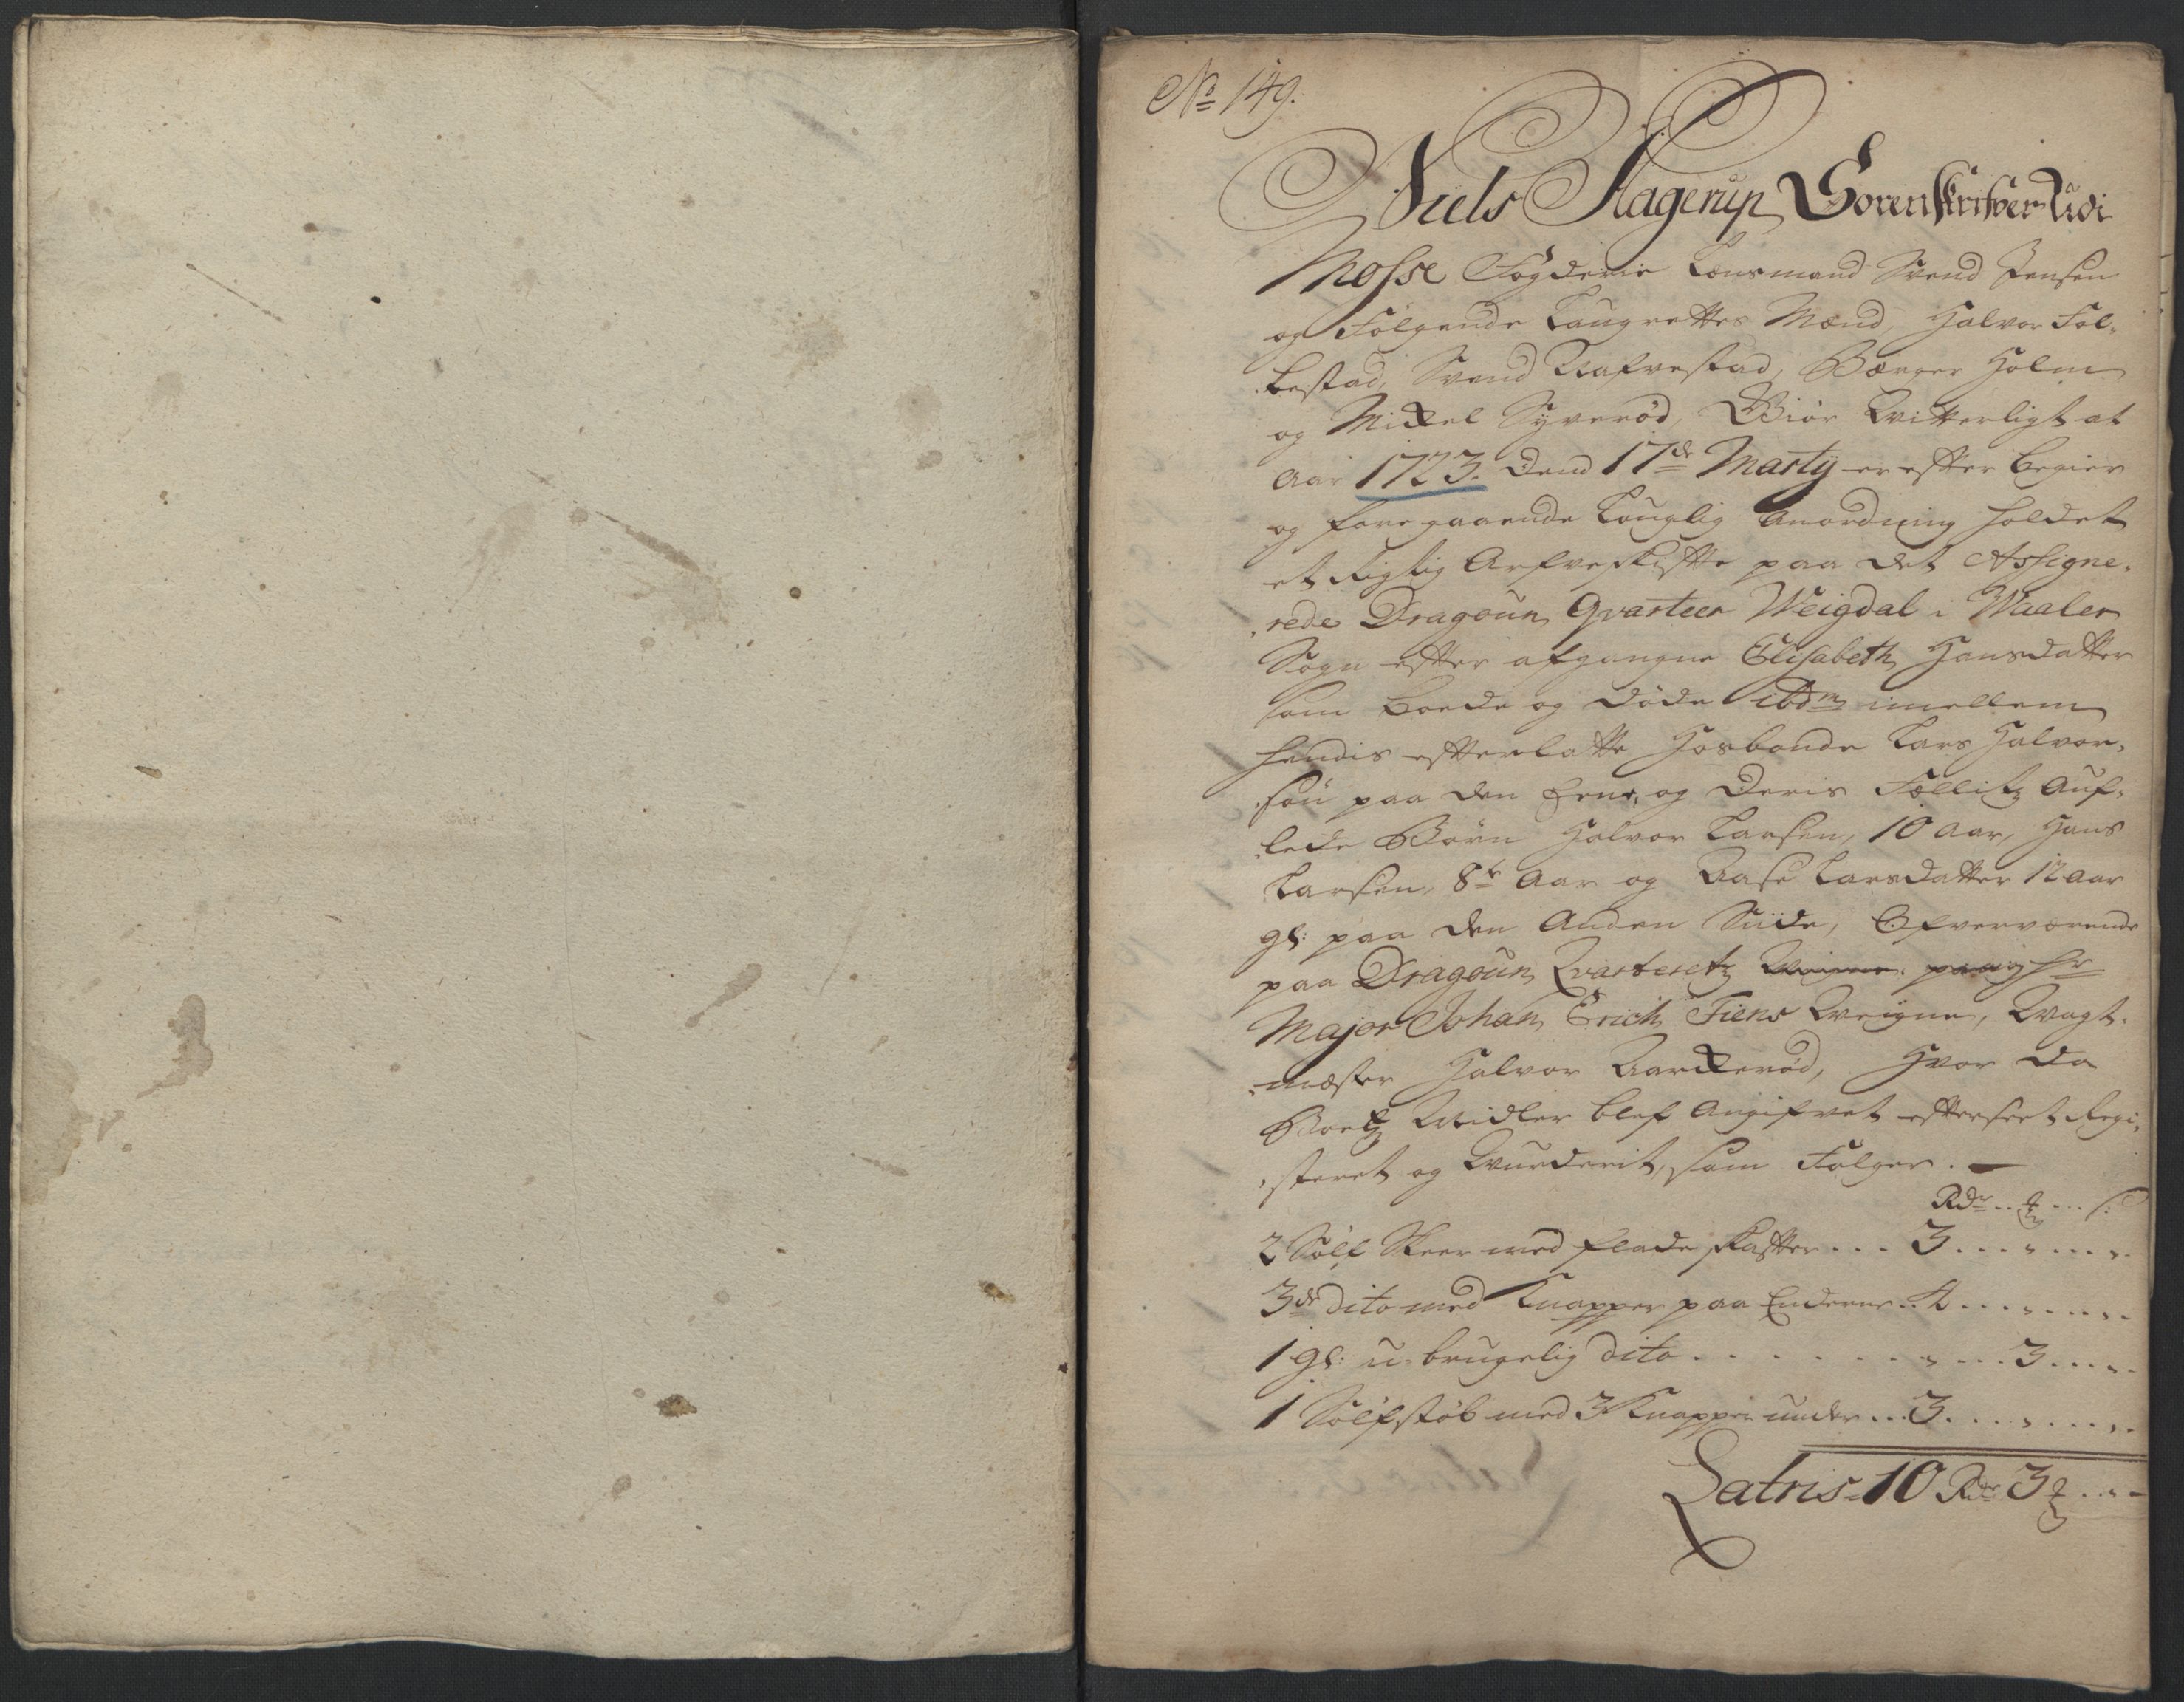 No 149.
Niels Hagerup Sorenskrifver Udi
Mosse Fogderie Lensmand Svend Jensen
og Følgende Laugrettes Mænd, Halvor Fol-
bestad, Svend Rafvestad, Børger Holm
og Mikkel Syverød, Giør Witterligt at
Aar 1723. Dend 17de Marty er efter begier
og foregaaende Louglig Anordning holdet
et Rigtig Arfveskifte paa det Assigne-
rede Dragoun Qvarteer Weigdal i Waaler
Sogn efter afgangne Elisabeth Hansdatter
som boede og døde ibdm imellem
hendis efterlatte Hosbonde Lars Halvor-
søn paa den Eene, og Deris Fællitz Auf-
lede Børn Halvor Larsen, 10 aar, Hans
Larsen, 8te Aar og Aase Larsdatter 12 aar
gl: paa den Anden Siide, Ofverværende
paa Dragoun Qvarteretz hr
Major Johan Erich Fiens Weigne, Wagt-
mæster Halvor Aarkerød, Hvor da
Boetz Midler blef Angifvet efterseet Regi-
steret og Wurderit, som Følger.
Rdr .. .. s:
2 Sølf Skeer med flade Skafter ... 3 ... " ... "
3de dito med Knapper paa Enderne .. 4 ... " ... "
1 gl: u-brugelig dito ... " ... 3 ... "
1 Sølfstøb med 3 Knapper under ... 3 ... " ... "
Latris 10 Rdr 3 ... "